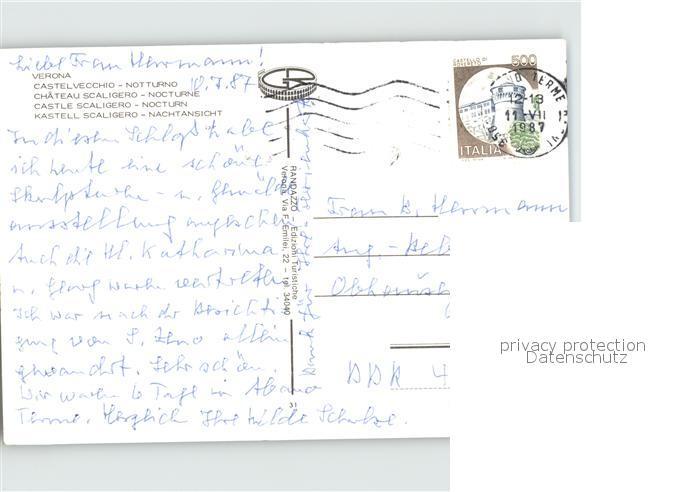 Liebe Frau Herrmann!
VERONA
CASTELVECCHIO - NOTTURNO
10.7.87
CHÂTEAU SCALIGERO - NOCTURNE
CASTLE SCALIGERO - NOCTURN
KASTELL SCALIGERO - NACHTANSICHT
In diesem Schloß habe
ich heute eine schöne
Skulpturen- u. Gemälde
ausstellung angesehen
Auch die Hl. Katharina
u. Georg waren vertreten
Ich war nach der Besichti
gung von S. Zeno allein
gewandert. Sehr schön.
Wir waren 6 Tage in Abano
Terme. Herzlich Ihre Hilde Schulze.
RANDAZZO - Edizioni Turistiche
Verona Via F. Emilei, 22 - tel. 34040
31
CASTELLO DI
ROVERETO
500
ITALIA
ANO TERME
12-13
11-VII
1987
Frau B. Herrmann
DDR 4
privacy protection
Datenschutz